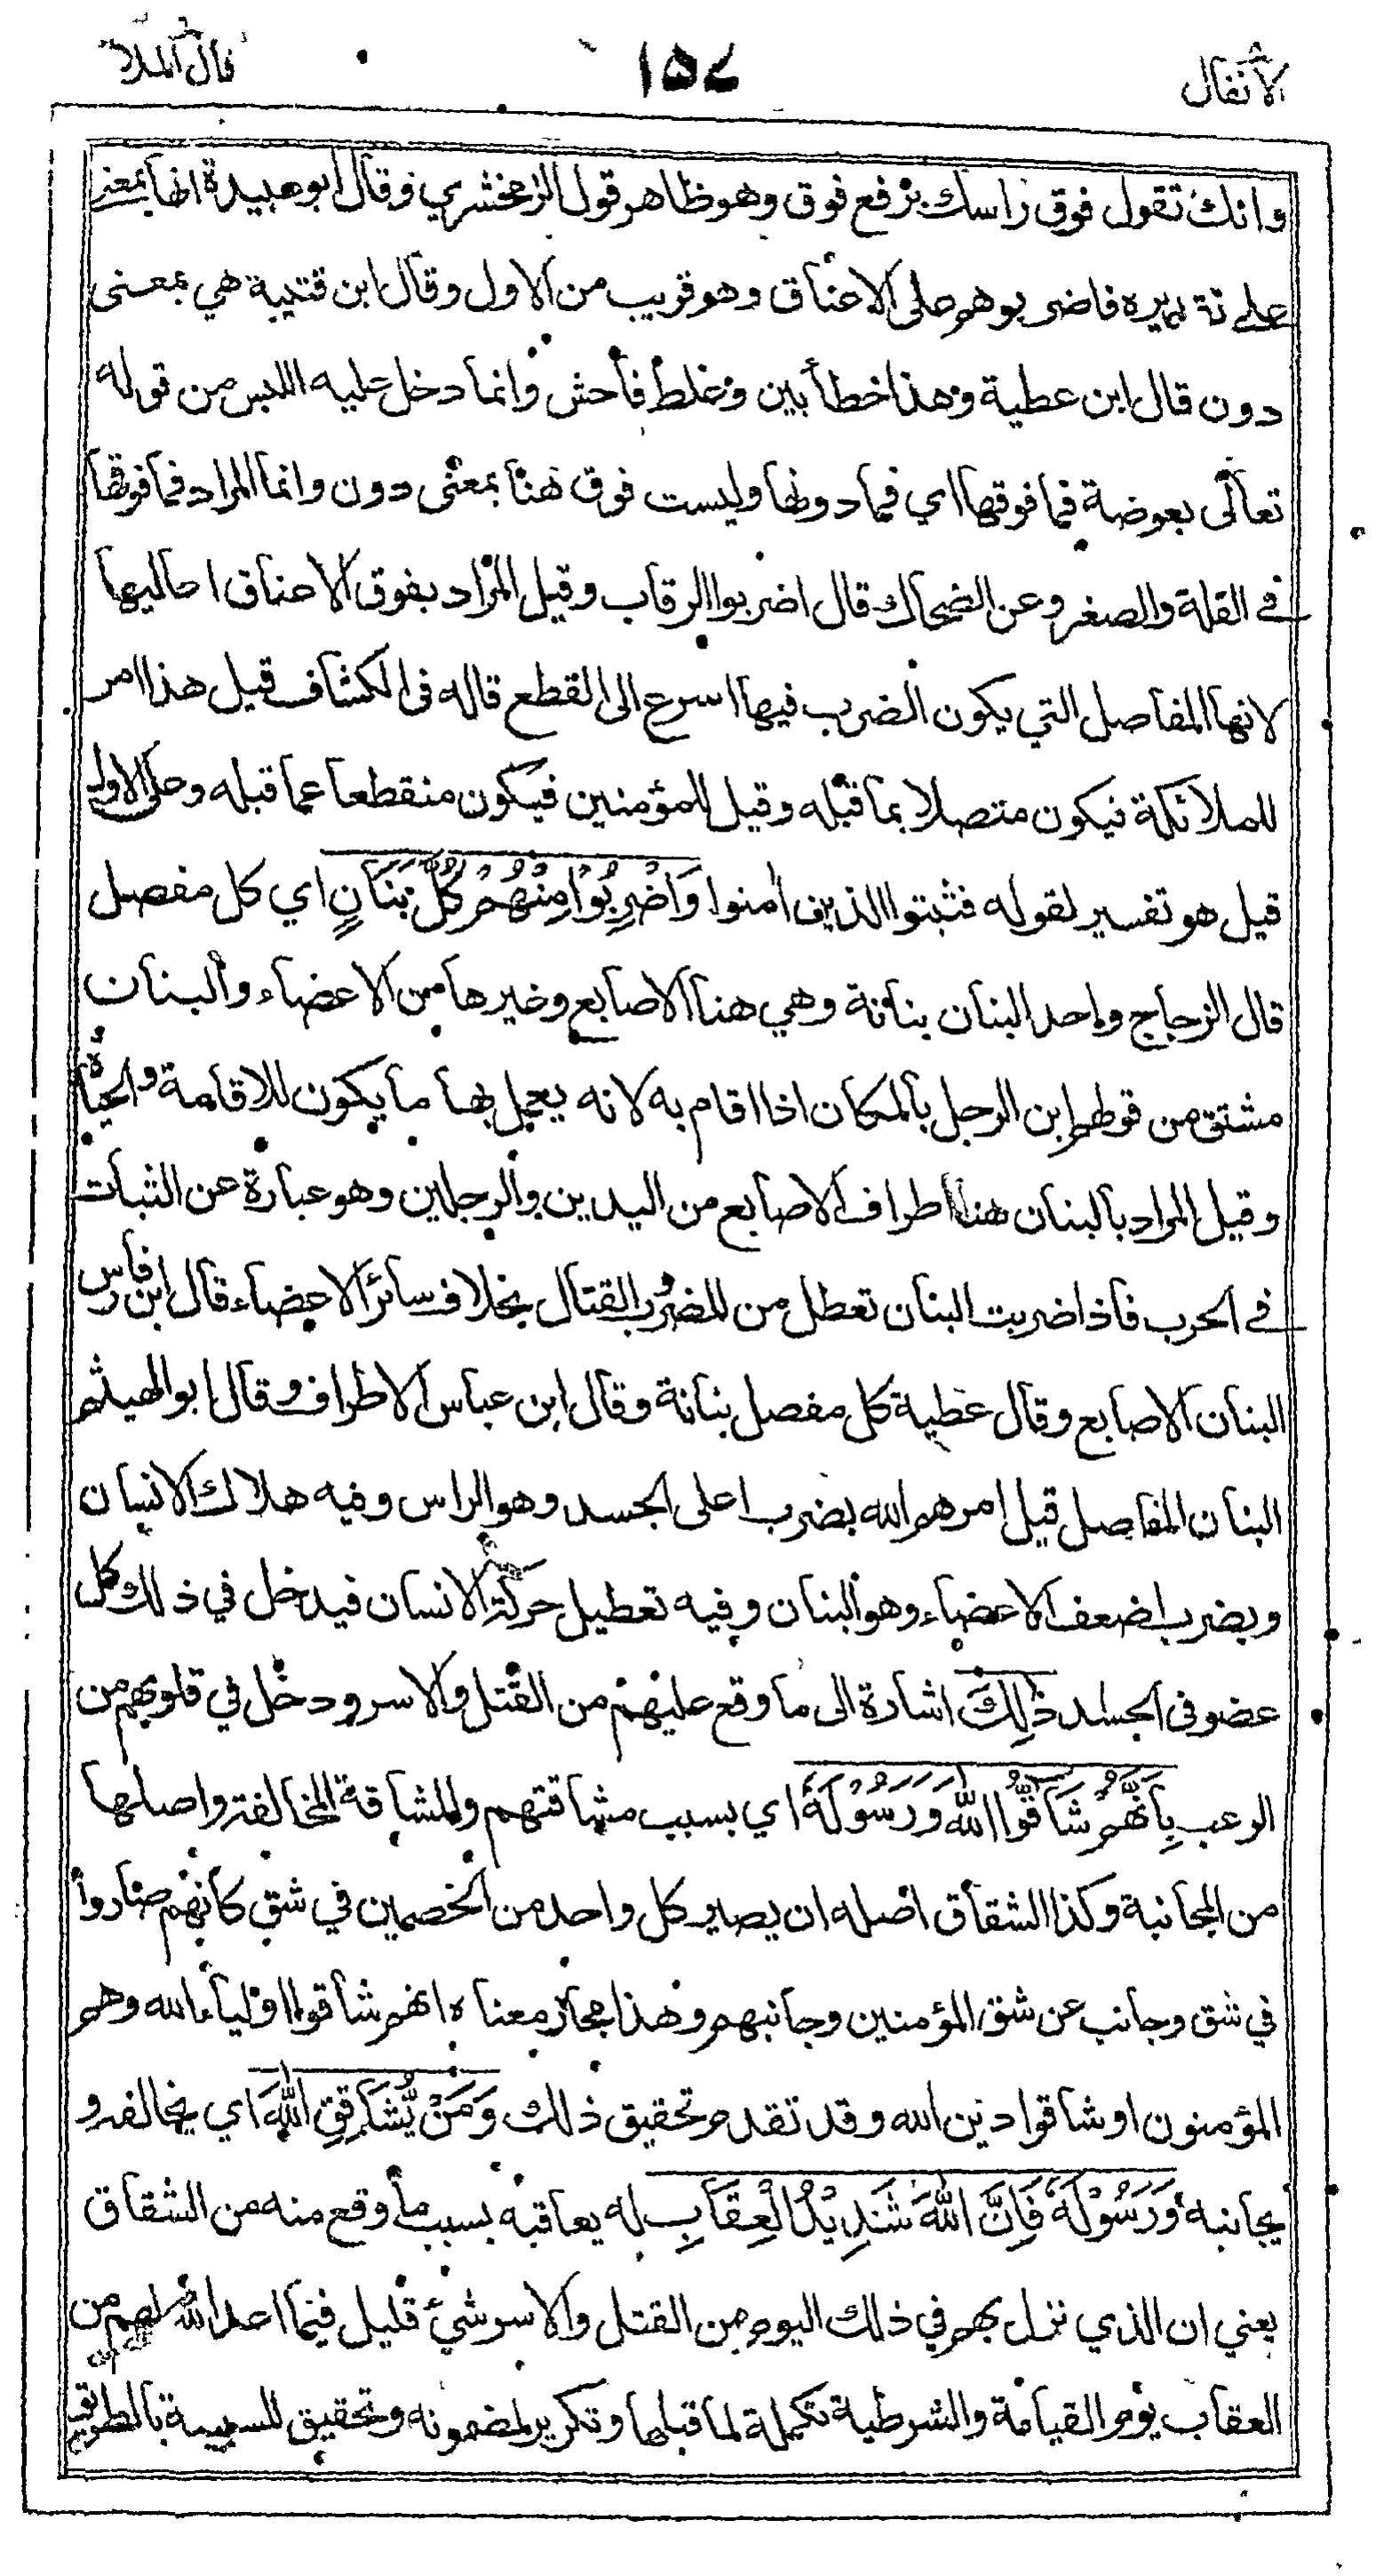 الأنفال ١٥٧ قال الملا
وانك تقول فوق راسك برفع فوق وهو ظاهر قول الزمخشري وقال ابو عبيدة انها بمعنى
على تقديره فاضربوهم على الاعناق وهو قريب من الاول وقال ابن قتيبة هي بمعنى
دون قال ابن عطية وهذا خطأ بين وغلط فاحش وانما دخل عليه اللبس من قوله
تعالى بعوضة فما فوقها اي فما دونها وليست فوق هنا بمعنى دون وانما المراد فما فوقها
في القلة والصغر وعن الضحاك قال اضربوا الرقاب وقيل المراد بفوق الاعناق اعاليها
لانها المفاصل التي يكون الضرب فيها اسرع الى القطع قاله فى الكشاف قيل هذا امر
للملائكة فيكون متصلا بما قبله وقيل للمؤمنين فيكون منقطعا عما قبله وعلى الاول
قيل هو تفسير لقوله فثبتوا الذين امنوا وَاضْرِبُوْا مِنْهُمْ كُلَّ بَنَانٍ اي كل مفصل
قال الزجاج واحد البنان بنانة وهي هنا الاصابع وغيرها من الاعضاء والبنان
مشتق من قولهم ابن الرجل بالمكان اذا اقام به لانه يعمل بها ما يكون للاقامة والحياة
وقيل المراد بالبنان هنا اطراف الاصابع من اليدين والرجلين وهو عبارة عن الثبات
في الحرب فاذا ضربت البنان تعطل من المضروب القتال بخلاف سائر الاعضاء قال ابن فارس
البنان الاصابع وقال عطية كل مفصل بنانة وقال ابن عباس الاطراف وقال ابو الهيثم
البنان المفاصل قيل امرهم الله بضرب اعلى الجسد وهو الراس وفيه هلاك الانسان
وبضرب اضعف الاعضاء وهو البنان وفيه تعطيل حركة الانسان فيدخل في ذلك كل
عضو فى الجسد ذٰلِكَ اشارة الى ما وقع عليهم من القتل والاسر ودخل في قلوبهم من
الرعب بِاَنَّهُمْ شَاقُّوا اللهَ وَرَسُوْلَهٗ اي بسبب مشاقتهم والمشاقة المخالفة واصلها
من المجانبة وكذا الشقاق اصله ان يصير كل واحد من الخصمين في شق كانهم صاروا
في شق وجانب عن شق المؤمنين وجانبهم وهذا مجاز معناه انهم شاقوا اولياء الله وهم
المؤمنون او شاقوا دين الله وقد تقدم تحقيق ذلك وَمَنْ يُّشَاقِقِ اللهَ اي يخالفه و
يجانبه وَرَسُوْلَهٗ فَاِنَّ اللهَ شَدِيْدُ الْعِقَابِ له يعاقبه بسبب ما وقع منه من الشقاق
يعني ان الذي نزل بهم في ذلك اليوم من القتل والاسر شيئ قليل فيما اعد الله لهم من
العقاب يوم القيامة والشرطية تكملة لما قبلها وتكرير لمضمونه وتحقيق للسببية بالطريق